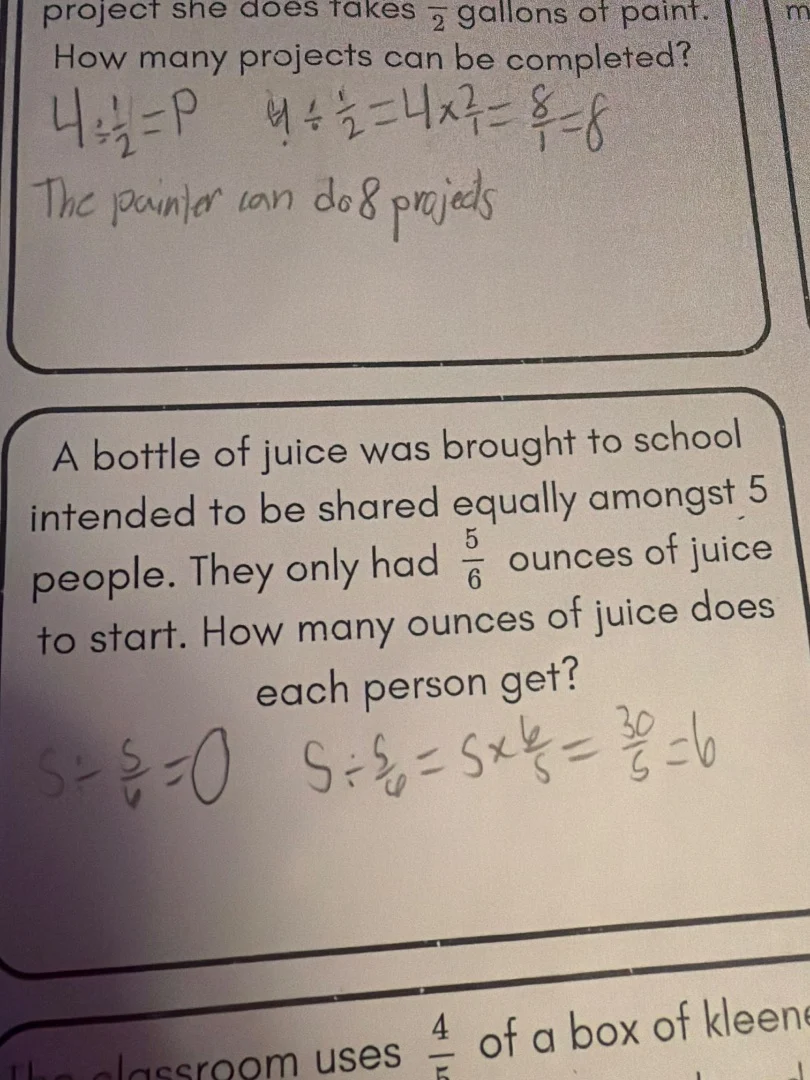 project she does takes 1/2 gallons of paint.
How many projects can be completed?
4 ÷ 1/2 = P 4 ÷ 1/2 = 4 x 2/1 = 8/1 = 8
The painter can do 8 projects
A bottle of juice was brought to school
intended to be shared equally amongst 5
people. They only had 5/6 ounces of juice
to start. How many ounces of juice does
each person get?
5 ÷ 5/6 = O 5 ÷ 5/6 = 5 x 6/5 = 30/5 = 6
classroom uses 4/5 of a box of